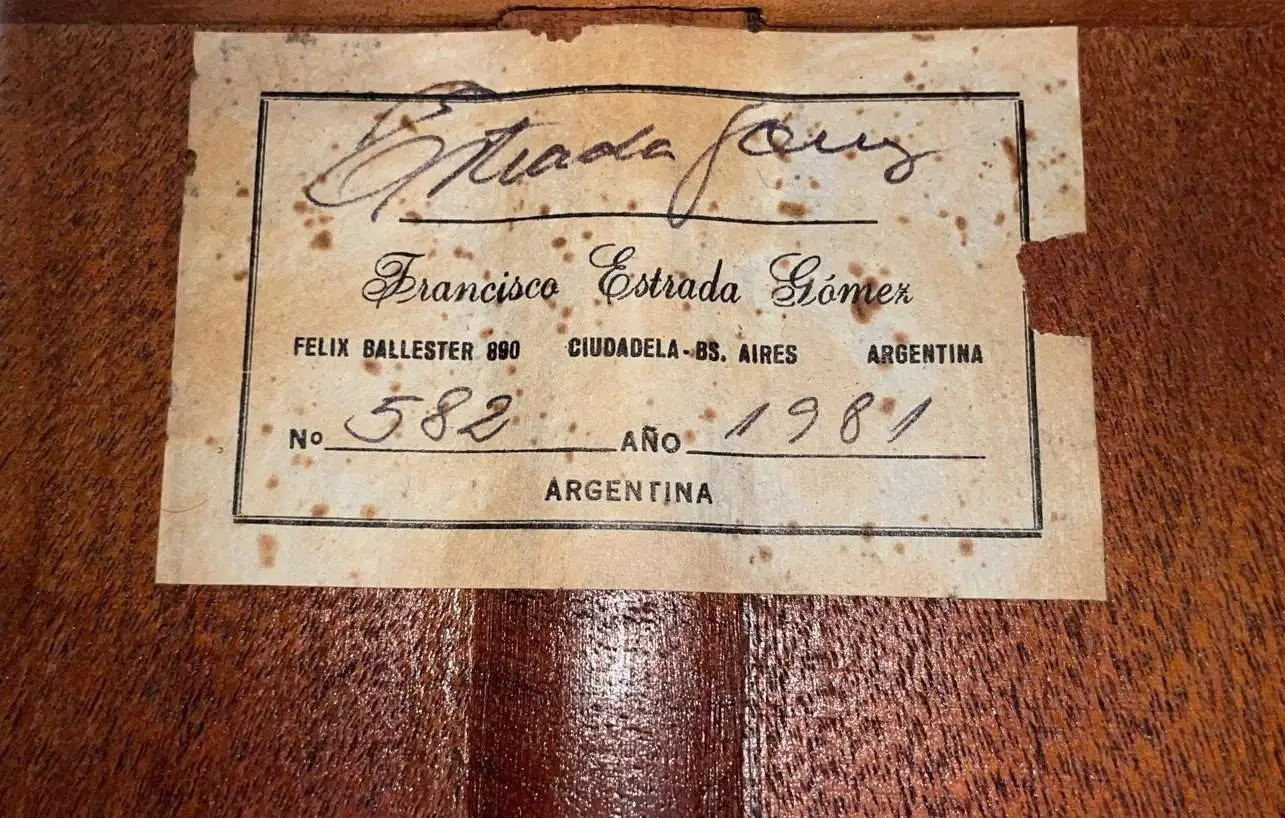 Estrada Gómez
Francisco Estrada Gómez
FELIX BALLESTER 890 CIUDADELA - BS. AIRES ARGENTINA
No 582 AÑO 1981
ARGENTINA